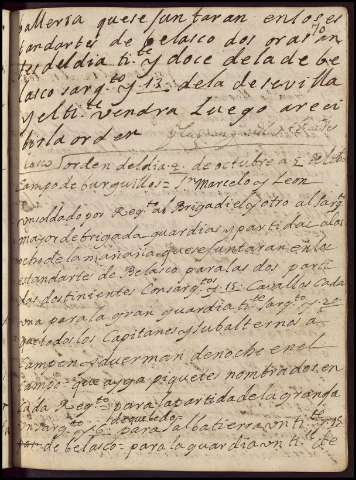 valleria que se juntaran en los es
tandartes de Belasco dos oras an
tes del dia ti.te y doce de la de be
lasco sarg.to y 12 de la de sevilla
y el ti.te vendra luego a reci
bir la orden
orden del dia 2 de octubre a 5
campo de burguillos = s.n Marcelo y Leon
un soldado por Reg.to al Brigadiel y otro al sarg.to
major de brigada guardias y partidas a las
ocho de la mañana que se juntaran en la
estandarte de Belasco para las dos parti
das dos tinientes con sarg.tos y 15 Cavallos cada
una para la gran guardia ti.te sarg.to y 20
que todos los Capitanes y subalternos a
campen y duerman de noche en el
campo = que aya piquete nombrados en
cada Reg.to = para la partida de la gran da
un sarg.to = para salbatierra un ti.te y 15
de belasco = para la guardia un ti.te de